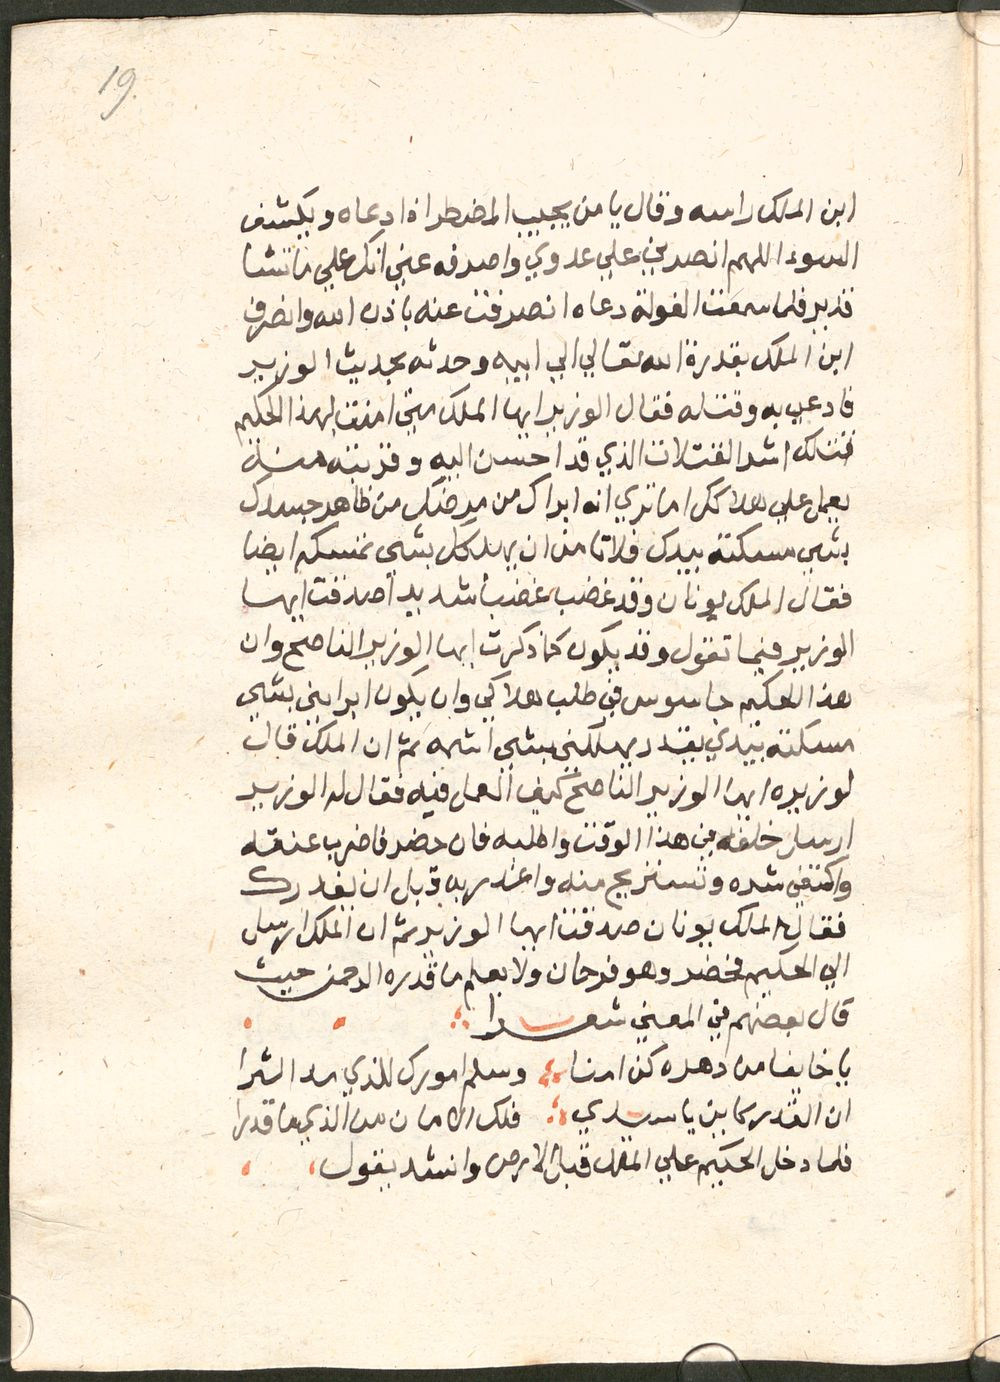 19.
ابن الملك راسه وقال يا من يجيب المضطر اذا دعاه ويكشف
السوء اللهم انصرني علي عدوي واصرفه عني انك علي ما تشا
قدير فلما سمعت الغولة دعاه انصرفت عنه باذن الله وانصرف
ابن الملك بقدرة الله تعالي الي ابيه وحدثه بحديث الوزير
فادعي به وقتله فقال الوزير ايها الملك متي امنت لهذا الحكيم
قتلك اشد القتلات الذي قد احسن اليه وقربته منك
يعمل علي هلاكك اما تري انه ابراك من مرضك من ظاهر جسدك
بشي مسكته بيدك فلا تامن ان يهلكك بشي تمسكه ايضا
فقال الملك يونان وقد غضب غضبا شديدا صدقت ايها
الوزير فيما تقول وقد يكون كما ذكرت ايها الوزير الناصح وان
هذا الحكيم جاسوس في طلب هلاكي وان يكون ابراني بشي
مسكته بيدي يقدر يهلكني بشي اشمه ثم ان الملك قال
لوزيره ايها الوزير الناصح كيف العمل فيه فقال له الوزير
ارسل خلفه في هذا الوقت واطلبه فان حضر فاضرب عنقه
واكتفي شره وتستريح منه واغدر به قبل ان يغدرك
فقال الملك يونان صدقت ايها الوزير ثم ان الملك ارسل
الي الحكيم فحضر وهو فرحان ولا يعلم ما قدره الرحمن حيث
قال بعضهم في المعني شعرا
يا خايفا من دهره كن امنا وسلم امورك للذي مد الثرا
ان القدر كاين يا سيدي فلك الامان من الذي ما قدرا
فلما دخل الحكيم علي الملك قبل الارض وانشد يقول